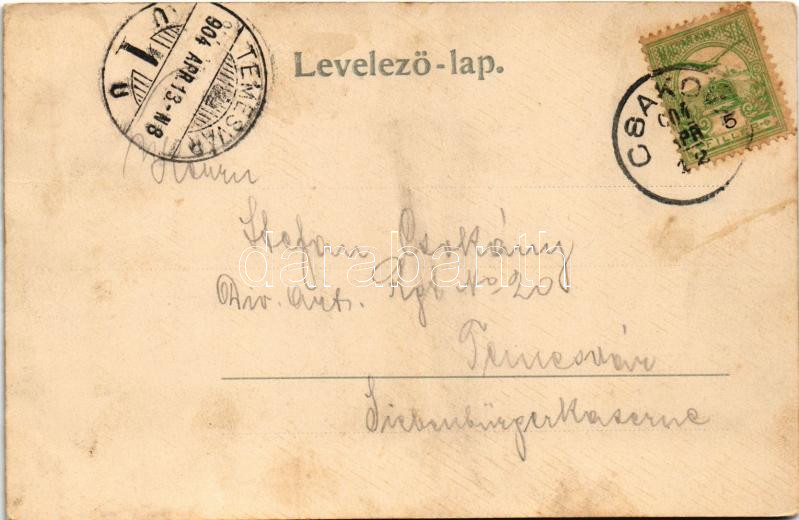 TEMESVÁR
904 APR.13-N8
U 1 U
Levelező-lap.
MAGYAR KIR. POSTA
FILLÉR
CSAKO
904 APR 12
Herrn
Stefan Csokány
Div. Art. Rgt No 20
Temesvár
Siebenbürgerkaserne
darabanth